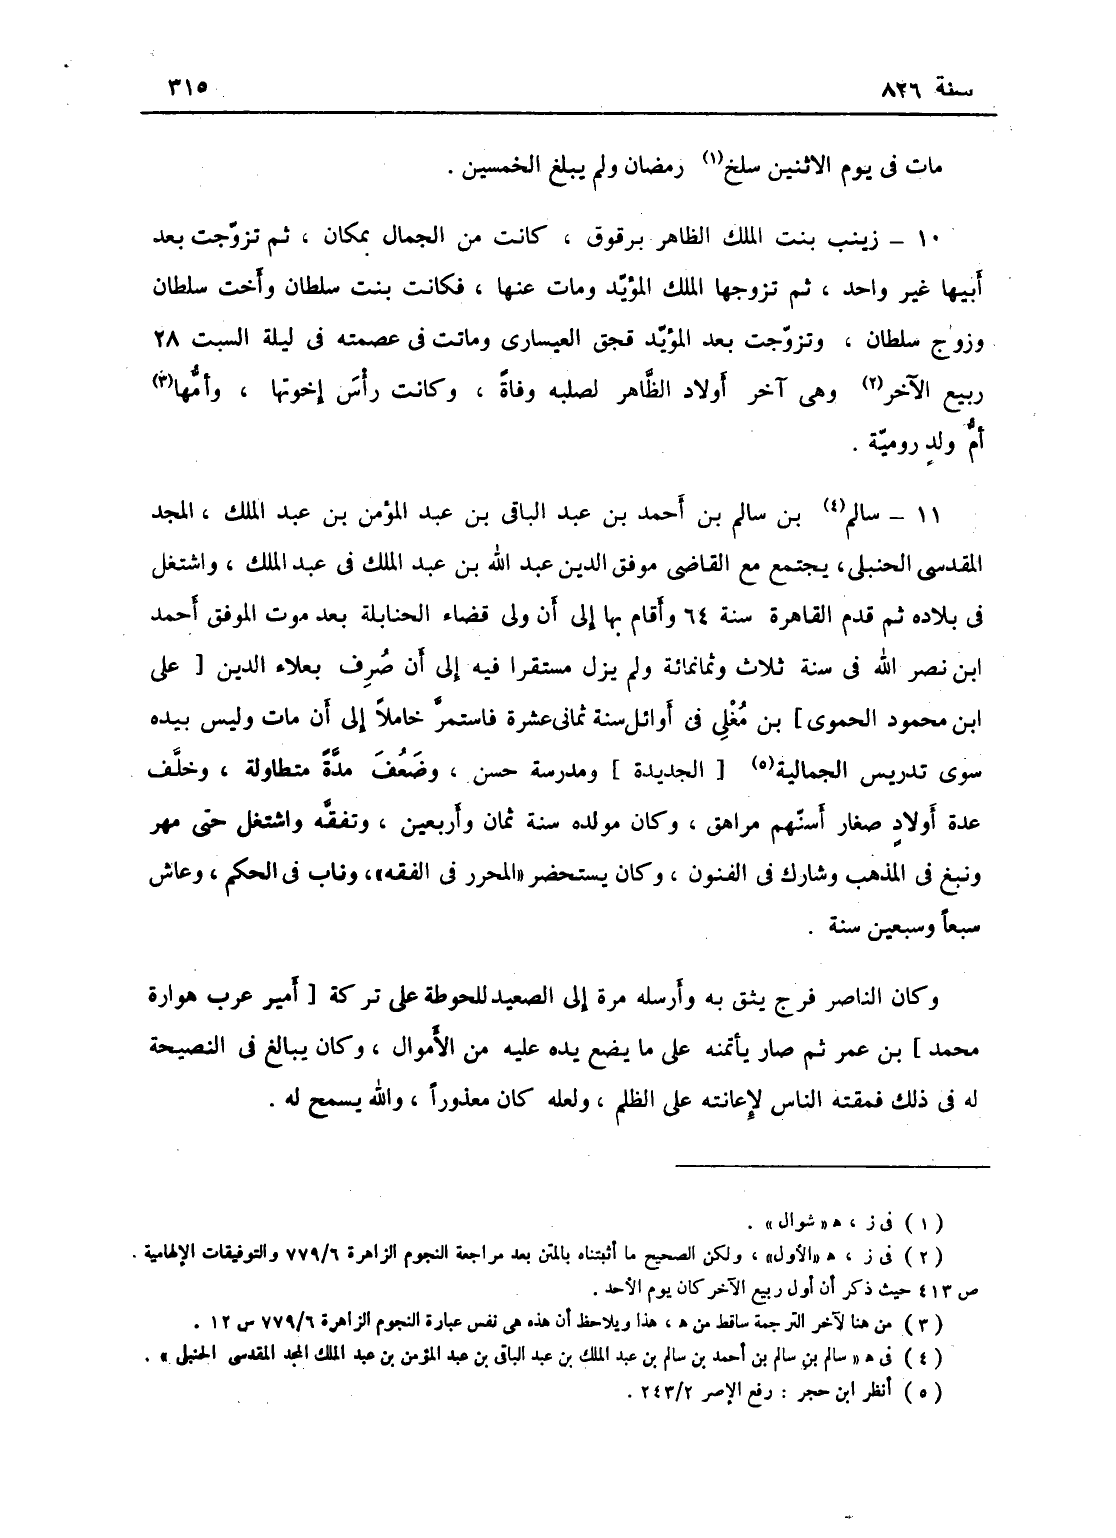 سنة ٨٢٦
٣١٥
مات فى يوم الاثنين سلخ(١) رمضان ولم يبلغ الخمسين .
١٠ – زينب بنت الملك الظاهر برقوق ، كانت من الجمال بمكان ، ثم تزوّجت بعد
أبيها غير واحد ، ثم تزوجها الملك المؤيّد ومات عنها ، فكانت بنت سلطان وأخت سلطان
وزوج سلطان ، وتزوّجت بعد المؤيّد قجق العيساوى وماتت فى عصمته فى ليلة السبت ٢٨
ربيع الآخر(٢) وهى آخر أولاد الظَّاهر لصلبه وفاةً ، وكانت رأسَ إخوتها ، وأمُّها(٣)
أمُّ ولدٍ روميّة .
١١ – سالم(٤) بن سالم بن أحمد بن عبد الباقى بن عبد المؤمن بن عبد الملك ، المجد
المقدسى الحنبلى، يجتمع مع القاضى موفق الدين عبد الله بن عبد الملك فى عبد الملك ، واشتغل
فى بلاده ثم قدم القاهرة سنة ٦٤ وأقام بها إلى أن ولى قضاء الحنابلة بعد موت الموفق أحمد
ابن نصر الله فى سنة ثلاث وثمانمائة ولم يزل مستقرا فيه إلى أن صُرِف بعلاء الدين [ على
ابن محمود الحموى ] بن مُغْلِى فى أوائل سنة ثمانى عشرة فاستمرَّ خاملاً إلى أن مات وليس بيده
سوى تدريس الجمالية(٥) [ الجديدة ] ومدرسة حسن ، وضَعُفَ مدَّةً متطاولة ، وخلَّف
عدة أولادٍ صغار أسنّهم مراهق ، وكان مولده سنة ثمان وأربعين ، وتفقَّه واشتغل حتى مهر
ونبغ فى المذهب وشارك فى الفنون ، وكان يستحضر «المحرر فى الفقه»، وناب فى الحكم ، وعاش
سبعاً وسبعين سنة .
وكان الناصر فرج يثق به وأرسله مرة إلى الصعيد للحوطة على تركة [ أمير عرب هوارة
محمد ] بن عمر ثم صار يأتمنه على ما يضع يده عليه من الأموال ، وكان يبالغ فى النصيحة
له فى ذلك فمقته الناس لإعانته على الظلم ، ولعله كان معذوراً ، والله يسمح له .
( ١ ) فى ز ، ھ « شوال » .
( ٢ ) فى ز ، ھ «الأول» ، ولكن الصحيح ما أثبتناه بالمتن بعد مراجعة النجوم الزاهرة ٧٧٩/٦ والتوفيقات الإلهامية .
ص ٤١٣ حيث ذكر أن أول ربيع الآخر كان يوم الأحد .
( ٣ ) من هنا لآخر الترجمة ساقط من ھ ، هذا ويلاحظ أن هذه هى نفس عبارة النجوم الزاهرة ٧٧٩/٦ س ١٢ .
( ٤ ) فى ھ « سالم بن سالم بن أحمد بن سالم بن عبد الملك بن عبد الباقى بن عبد المؤمن بن عبد الملك المجد المقدسى الحنبلى » .
( ٥ ) أنظر ابن حجر : رفع الإصر ٢٤٣/٢ .